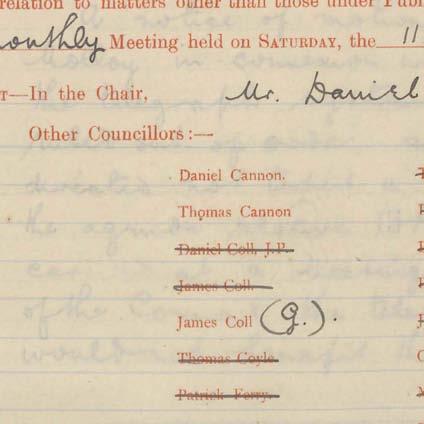 relation to matters other than those under Publ
onthly Meeting held on SATURDAY, the 11
T—In the Chair, Mr. Daniel
Other Councillors:—
Daniel Cannon.
Thomas Cannon
Daniel Coll, J.P.
James Coll
James Coll (G.).
Thomas Coyle
Patrick Ferry.